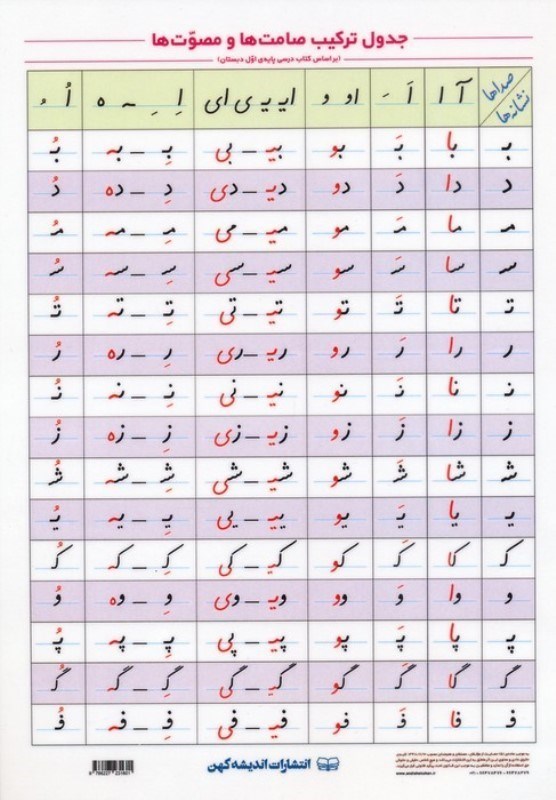 جدول ترکیب صامت‌ها و مصوّت‌ها
(بر اساس کتاب درسی پایه‌ی اوّل دبستان)
صداها نشانه‌ها آ ا اَ ـَ او و ایـ یـ ی ای اِ ـِ ـه ه اُ ـُ
بـ با بَ بو بیـ ــ بی بِـ ــ به بُ
د دا دَ دو دیـ ــ دی دِ ــ ده دُ
مـ ما مَـ مو میـ ــ می مِـ ــ مه مُـ
سـ سا سَـ سو سیـ ــ سی سِـ ــ سه سُـ
تـ تا تَـ تو تیـ ــ تی تِـ ــ ته تُـ
ر را رَ رو ریـ ــ ری رِ ــ ره رُ
نـ نا نَـ نو نیـ ــ نی نِـ ــ نه نُـ
ز زا زَ زو زیـ ــ زی زِ ــ زه زُ
شـ شا شَـ شو شیـ ــ شی شِـ ــ شه شُـ
یـ یا یَـ یو ییـ ــ یی یِـ ــ یه یُـ
کـ کا کَـ کو کیـ ــ کی کِـ ــ که کُـ
و وا وَ وو ویـ ــ وی وِ ــ وه وُ
پـ پا پَـ پو پیـ ــ پی پِـ ــ په پُـ
گـ گا گَـ گو گیـ ــ گی گِـ ــ گه گُـ
فـ فا فَـ فو فیـ ــ فی فِـ ــ فه فُـ
انتشارات اندیشه کهن